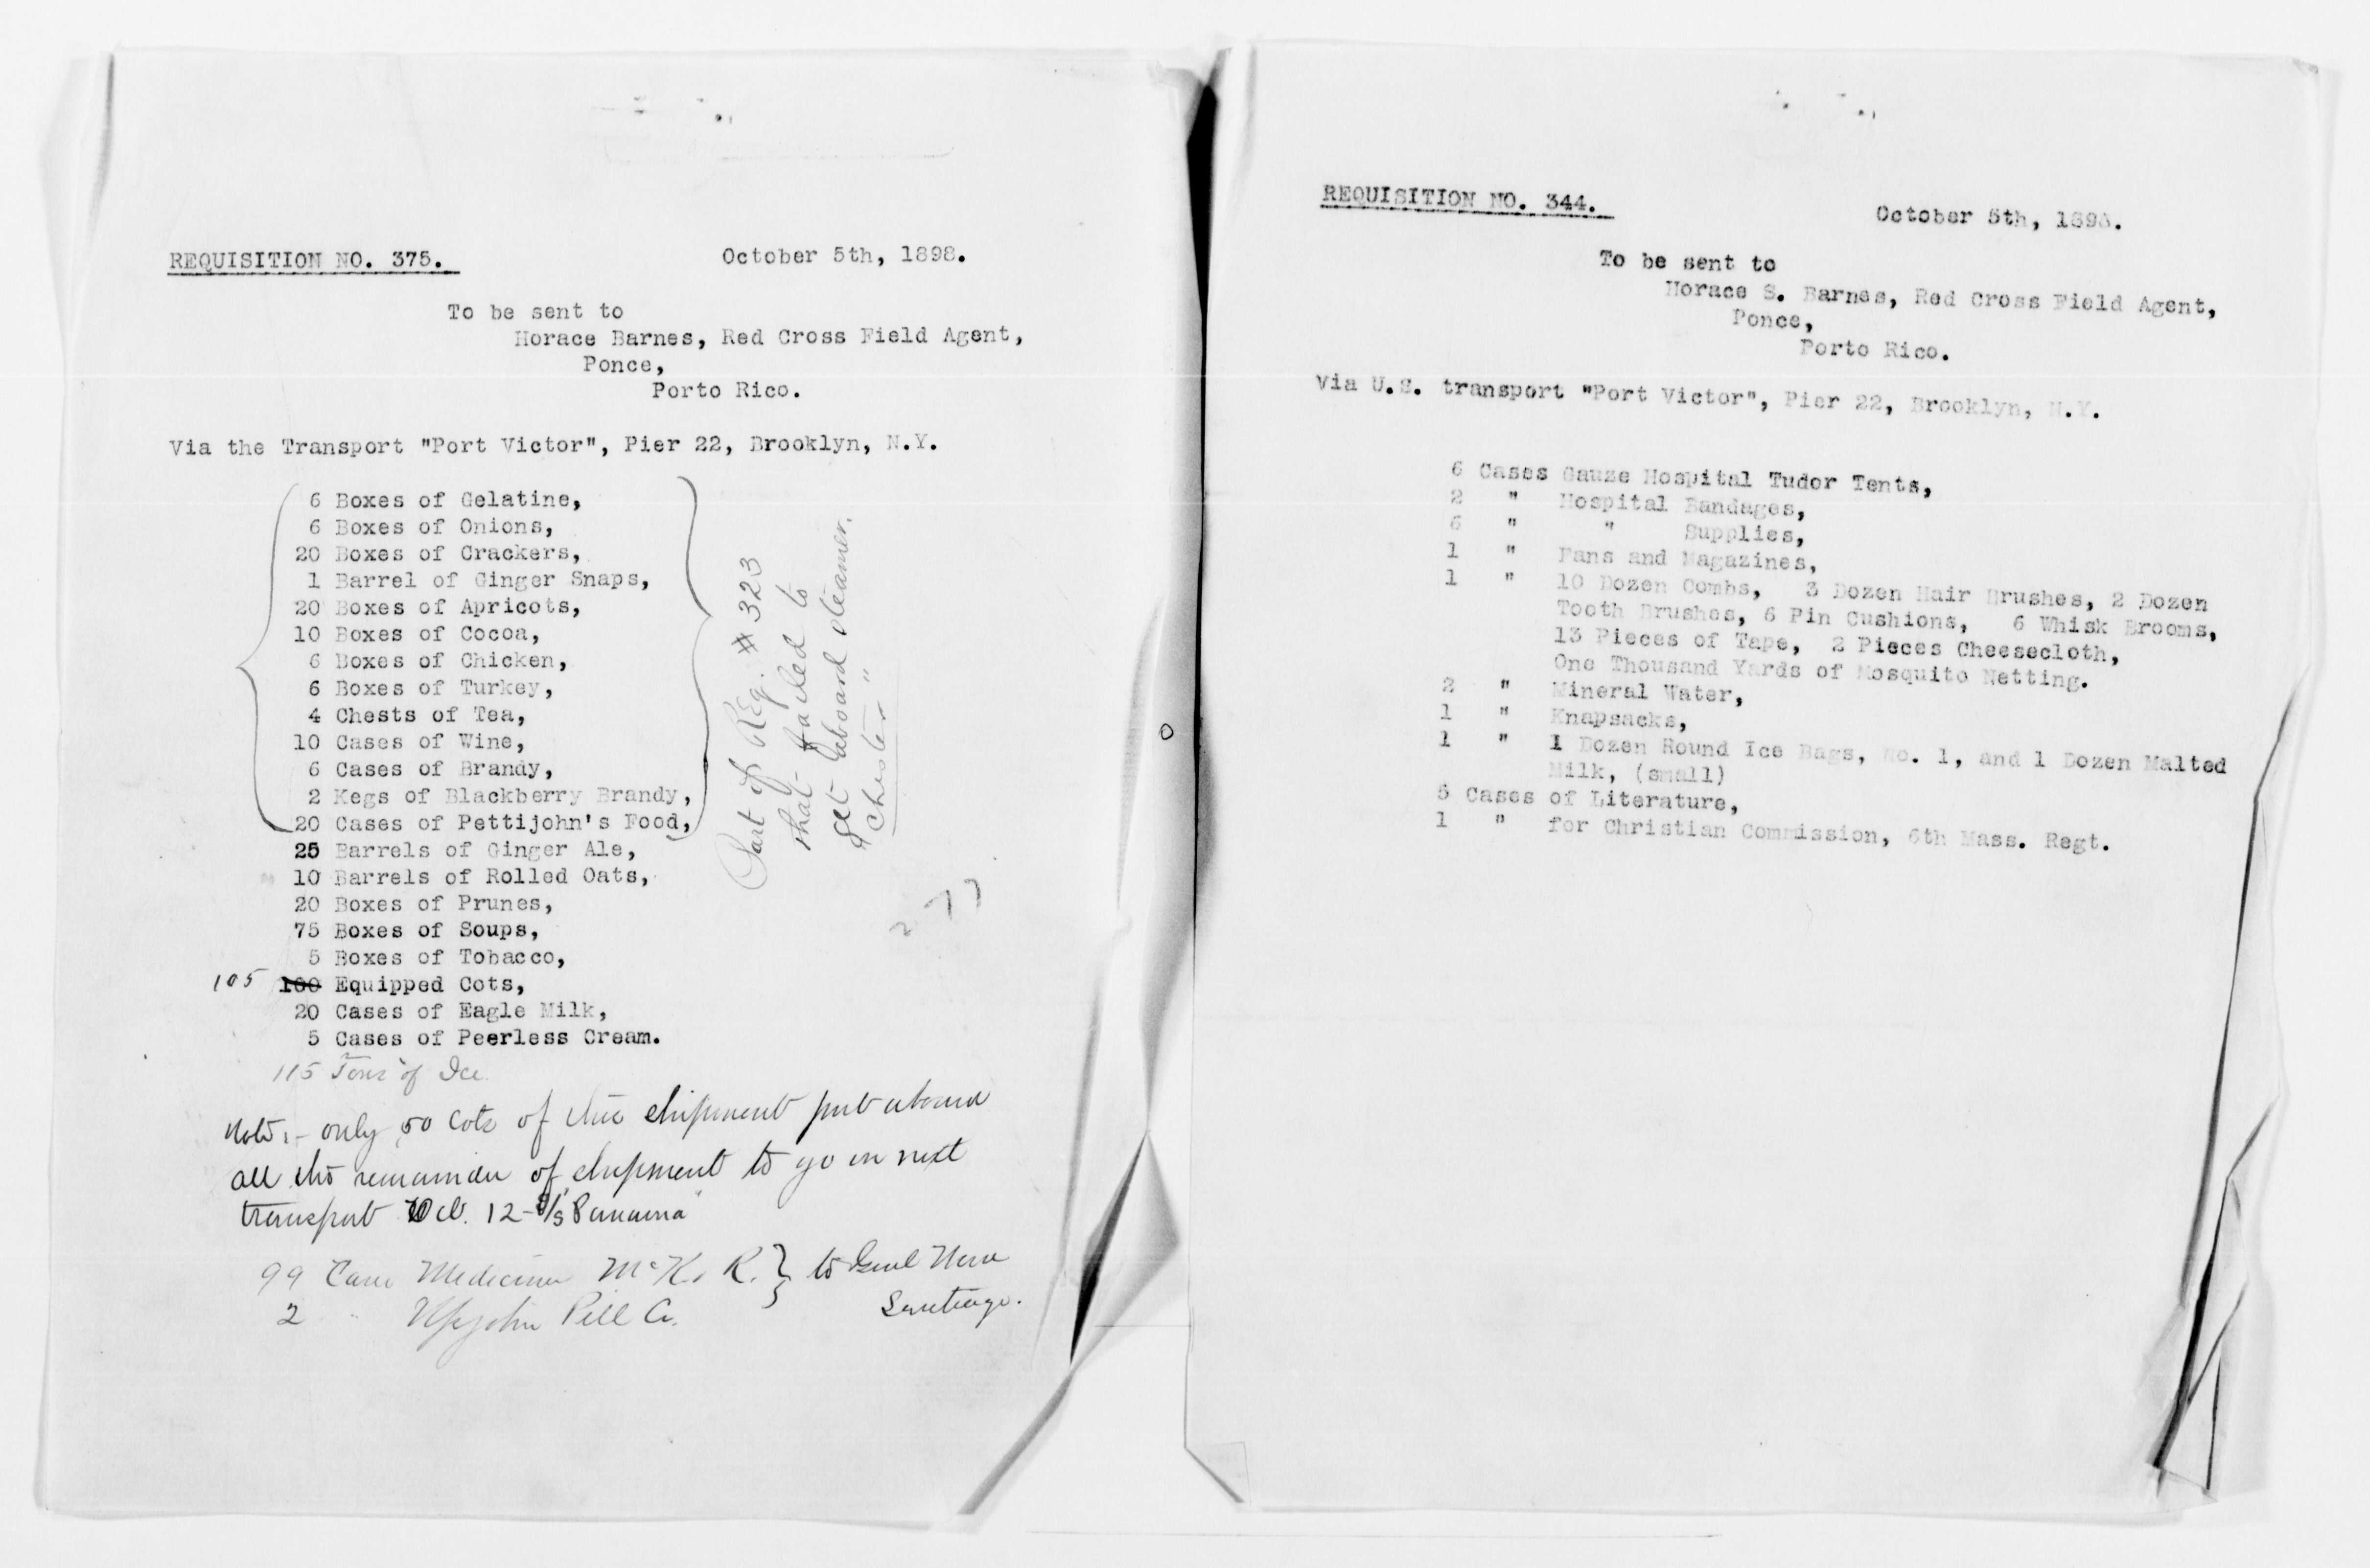 REQUISITION NO. 375. October 5th, 1898.
To be sent to
Horace Barnes, Red Cross Field Agent,
Ponce,
Porto Rico.
Via the Transport "Port Victor", Pier 22, Brooklyn, N.Y.
6 Boxes of Gelatine,
6 Boxes of Onions,
20 Boxes of Crackers,
1 Barrel of Ginger Snaps,
20 Boxes of Apricots,
10 Boxes of Cocoa,
6 Boxes of Chicken,
6 Boxes of Turkey,
4 Chests of Tea,
10 Cases of Wine,
6 Cases of Brandy,
2 Kegs of Blackberry Brandy,
20 Cases of Pettijohn's Food,
Part of Req. # 323
that failed to
get aboard steamer.
"Chester"
25 Barrels of Ginger Ale,
10 Barrels of Rolled Oats,
20 Boxes of Prunes,
75 Boxes of Soups,
5 Boxes of Tobacco,
105 100 Equipped Cots,
20 Cases of Eagle Milk,
5 Cases of Peerless Cream.
277
115 Tons of Ice
Note:- only 50 Cots of this shipment put aboard
all the remainder of shipment to go on next
transport Oct. 12 - S/S "Panama"
99 Case Medicine McK. & R. } to Genl Wood
2 " Upjohn Pill Co. Santiago.
REQUISITION NO. 344.
October 5th, 1898.
To be sent to
Horace S. Barnes, Red Cross Field Agent,
Ponce,
Porto Rico.
Via U.S. transport "Port Victor", Pier 22, Brooklyn, N.Y.
6 Cases Gauze Hospital Tudor Tents,
2 " Hospital Bandages,
6 " " Supplies,
1 " Fans and Magazines,
1 " 10 Dozen Combs, 3 Dozen Hair Brushes, 2 Dozen
Tooth Brushes, 6 Pin Cushions, 6 Whisk Brooms,
13 Pieces of Tape, 2 Pieces Cheesecloth,
One Thousand Yards of Mosquito Netting.
2 " Mineral Water,
1 " Knapsacks,
1 " 1 Dozen Round Ice Bags, No. 1, and 1 Dozen Malted
Milk, (small)
5 Cases of Literature,
1 " for Christian Commission, 6th Mass. Regt.